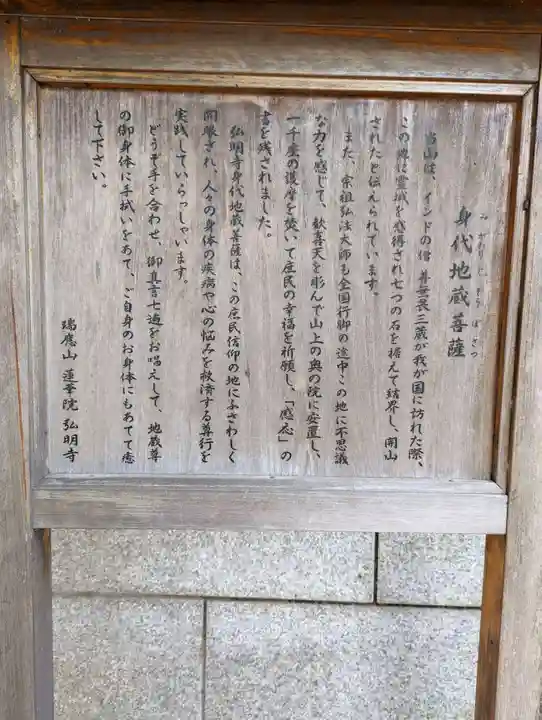 身代地蔵菩薩
みがわりじぞうぼさつ
当山は、インドの僧 善無畏三蔵が我が国に訪れた際、
この樹に霊域を感得され七つの石を据えて結界し、開山
されたと伝えられています。
また、宗祖弘法大師も全国行脚の途中この地に不思議
な力を感じて、歓喜天を彫んで山上の奥の院に安置し、
一千座の護摩を焚いて庶民の幸福を祈願し、「感応」の
書を残されました。
弘明寺身代地蔵菩薩は、この庶民信仰の地にふさわしく
開眼され、人々の身体の疾病や心の悩みを救済する尊行を
実践していらっしゃいます。
どうぞ手を合わせ、御真言七遍をお唱えして、地蔵尊
の御身体に手拭いをあて、ご自身のお身体にもあてて癒
して下さい。
瑞應山 蓮華院 弘明寺